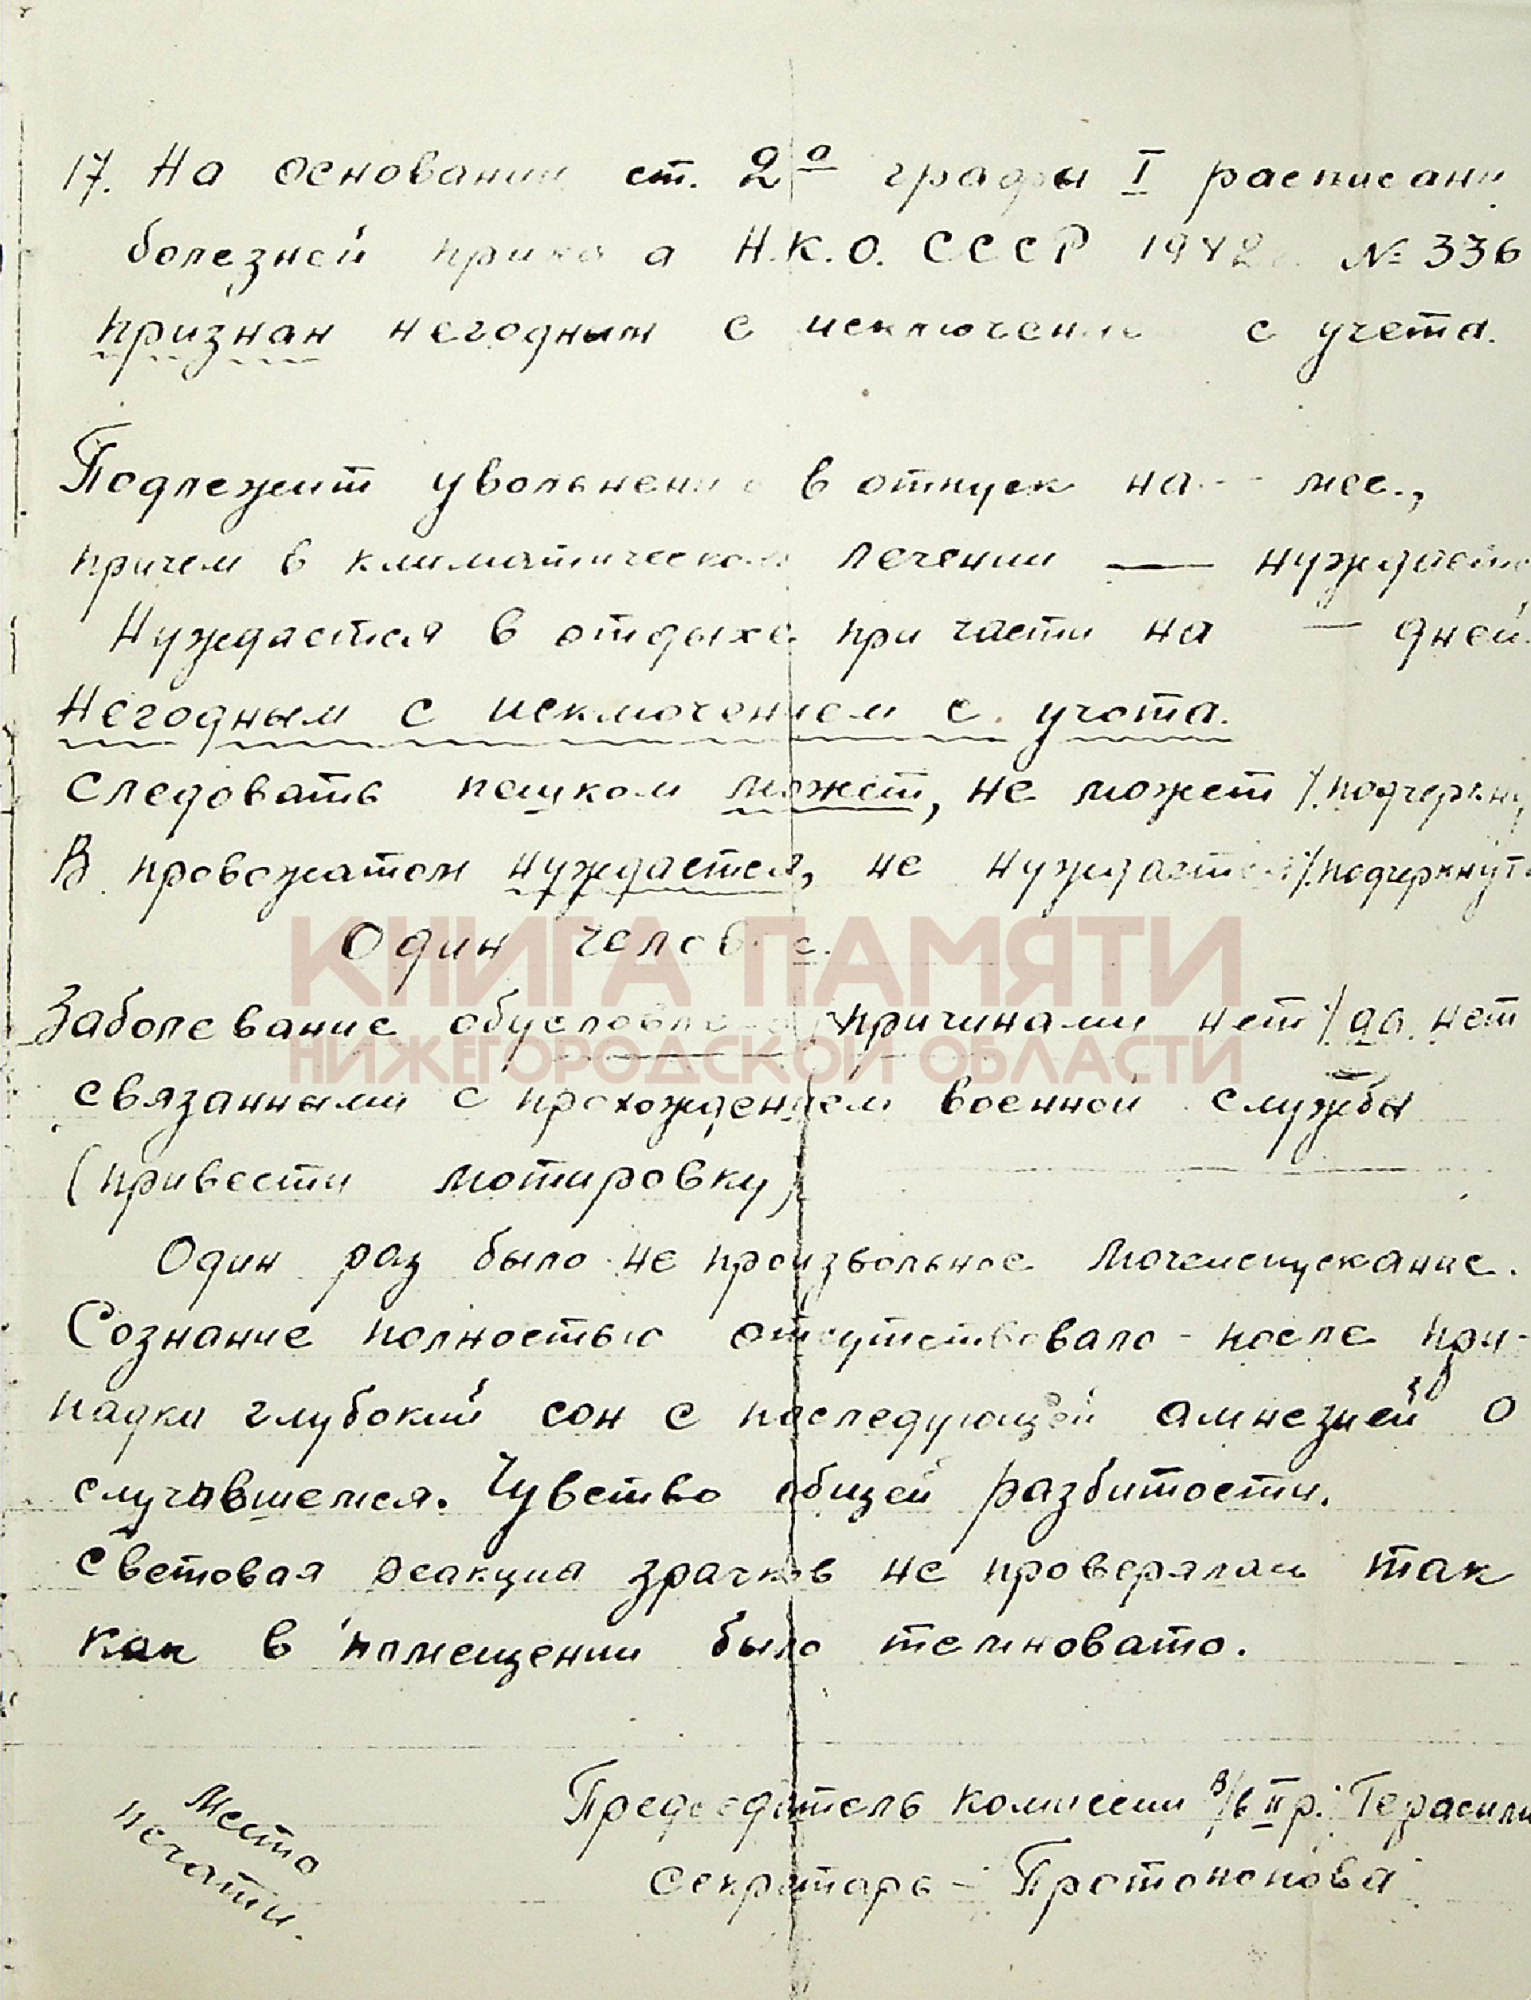 17. На основании ст. 2а графы I расписани
болезней приказа Н.К.О. СССР 1942г. № 336
признан негодным с исключени с учета.
Подлежит увольнению в отпуск на -- мес.,
причем в климатическом лечении — нуждается
Нуждается в отдыхе при части на — дней.
Негодным с исключением с учета.
Следовать пешком может, не может /подчеркну
В провожатом нуждается, не нуждается /.подчеркнут.
Один челов.
КНИГА ПАМЯТИ
Заболевание обусловлено причинами нет/да. нет
НИЖЕГОРОДСКОЙ ОБЛАСТИ
связанными с прохождением военной службы
(привести мотировку)
Один раз было не произвольное мочеиспускание.
Сознание полностью отсутствовало - после при-
падка глубокий сон с последующей амнезией о
случившемся. Чувство общей разбитости.
Световая реакция зрачков не проверялась так
как в помещении было темновато.
Место
печати.
Председатель комиссии в/в II р. Герасим
Секретарь - Протопопова